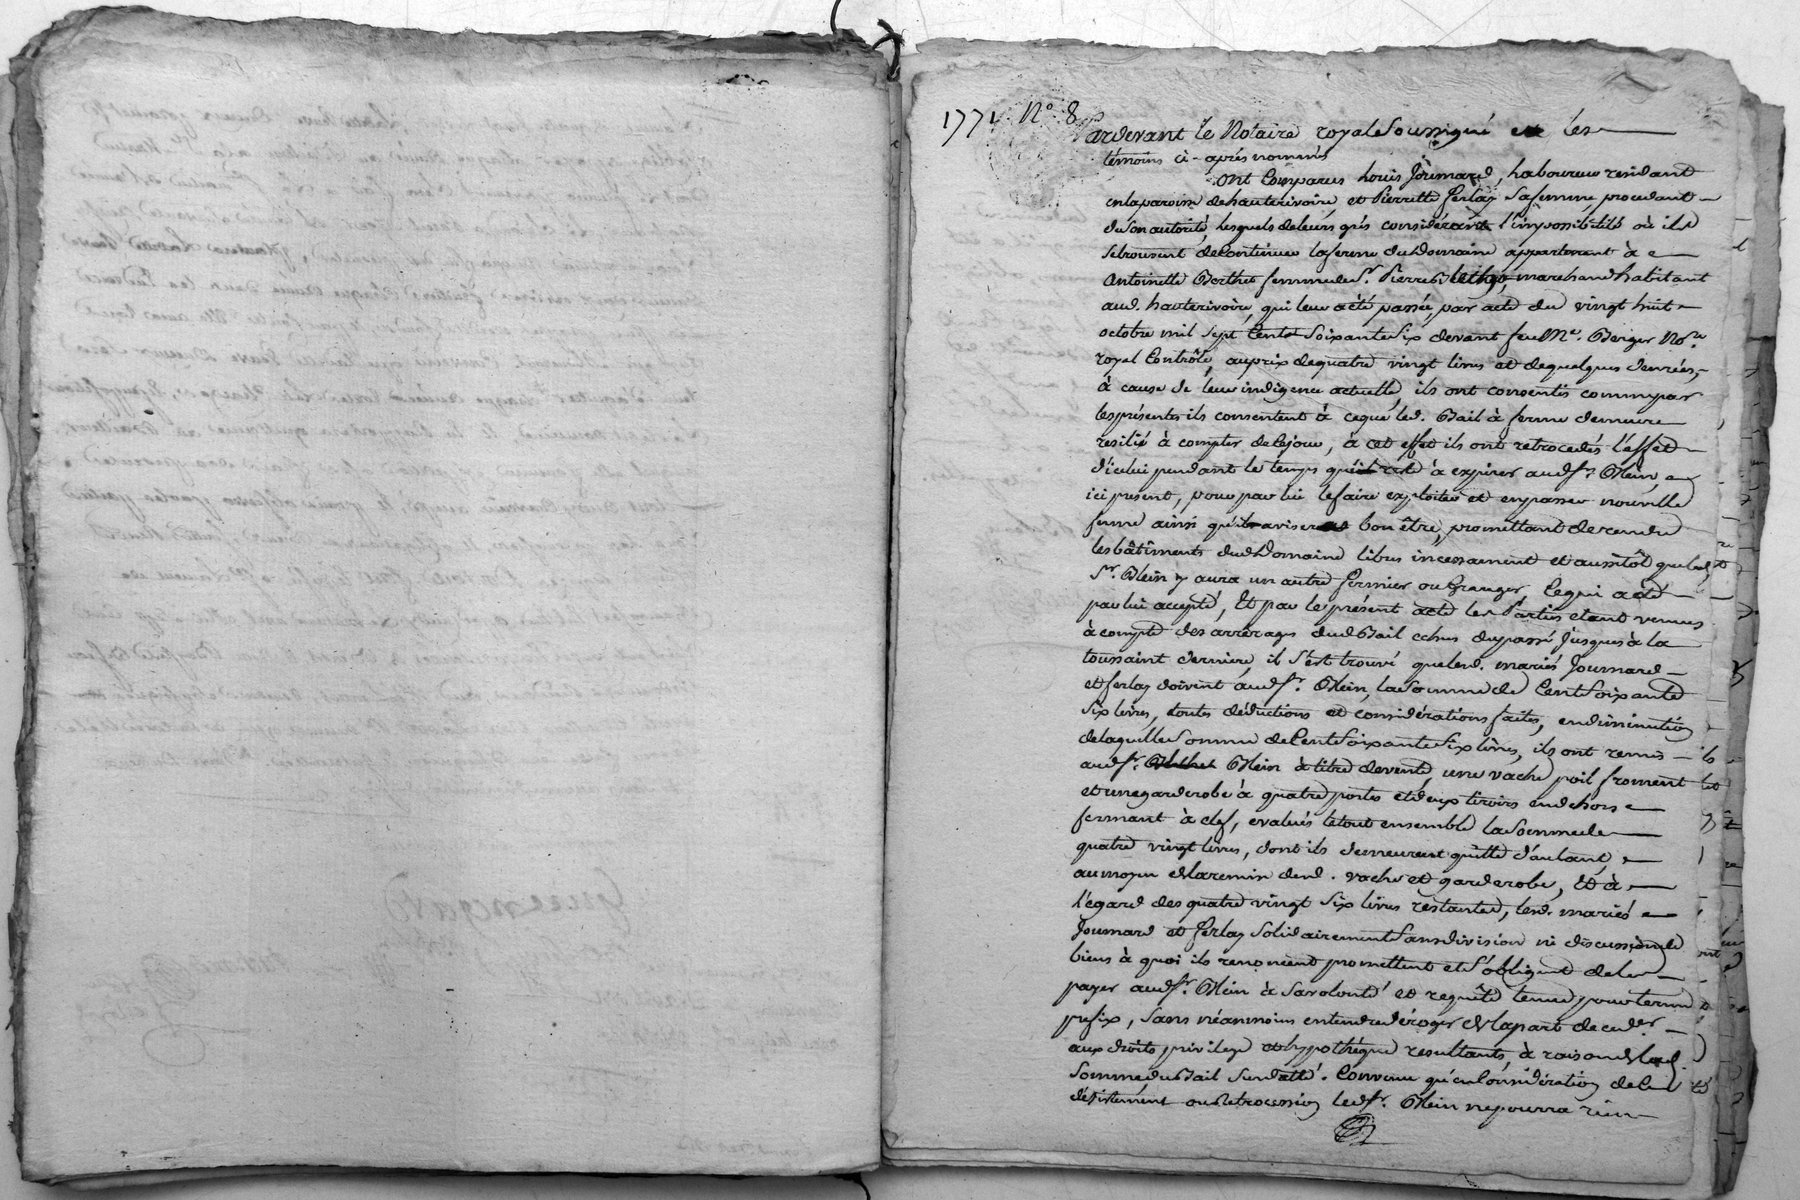 1771 N° 8
Pardevant le Notaire royal Soussigné et les
témoins ci-après nommés
ont Comparus Louis Joumard, Laboureur residant
en la paroisse de hauterivoire et Pierrette ferlay Sa femme, procedant
de Son autorité, lesquels de leurs grés considérant l'impossibilité où ils
se trouvent de Continuer la ferme du Domaine appartenant à
Antoinette Berthet femme de Sr. Pierre marchand habitant
aud. hauterivoire, qui leur a été passée, par acte du vingt huit
octobre mil Sept Cents Soixante Six devant feu Me. Berger Nore.
royal Controlé, au prix de quatre vingt livres et de quelques denrées,
à cause de leur indigence actuelle, ils ont consentis comme par
les présentes ils consentent à ce que led. Bail à ferme demeure
resilié à compter de Ce jour, à cet effet ils ont retrocedés l'effet
d'icelui pendant le temps qui reste à expirer aud. Sr. Blein,
ici present, pour par lui le faire exploiter et en passer nouvelle
ferme ainsi qu'il avisera bon être, promettant de rendre
les bâtiments dud. Domaine libres incessament et aussitôt que led.
Sr. Blein y aura un autre fermier ou Granger, Ce qui a été
par lui accepté, Et par le présent acte les Parties étant venues
à compte des arrérages dud. Bail echus du passé Jusques à la
toussaint derniere, il S'est trouvé que lesd. mariés Joumard
et ferlay doivent aud. Sr. Blein, la Somme de Cent Soixante
Six livres, toutes déductions et considérations faites, en diminution
de laquelle Somme de Cent Soixante Six livres, ils ont remis
aud. Sr. Blein à titre de vente, une vache poil froment
et une garderobe à quatre portes et deux tiroirs en dehors
fermant à clef, evalués le tout ensemble la Somme de
quatre vingt livres, dont ils demeurent quitte d'autant,
au moyen de la remise desd. vache et garderobe, Et à
l'égard des quatre vingt Six livres restantes, lesd. mariés
Joumard et ferlay Solidairement Sans division ni discussion de
biens à quoi ils renoncent promettent et S'obligent de les
payer aud. Sr. Blein à Sa volonté et requête tenue pour terme
prefix, Sans néanmoins entendre déroger de la part de ced. Sr.
aux droits, privilege et hypothèque resultants, à raison de lad.
Somme du Bail Sus datté. Convenu qu'en Considération de Ce
désistement ou Retrocession led. Sr. Blein ne pourra rien